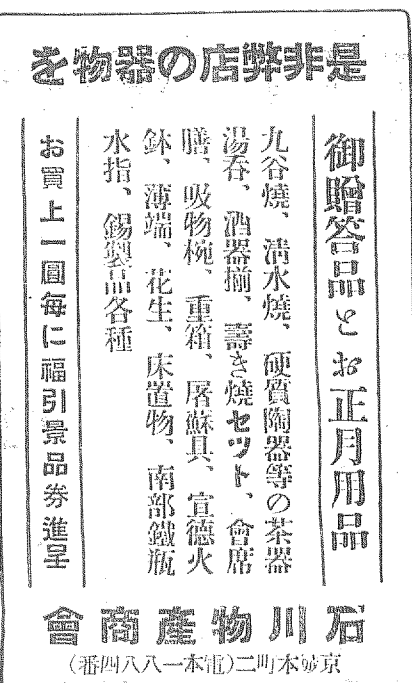 是非弊店の器物を
御贈答品とお正月用品
九谷燒、淸水燒、硬質陶器等の茶器
湯呑、酒器揃、壽き燒セット、會席
膳、吸物椀、重箱、屠蘇具、宣德火
鉢、薄端、花生、床置物、南部鐵瓶
水指、錫製品各種
お買上一圓每に福引景品券進呈
石川物產商會
京城本町二(電本一八八四番)